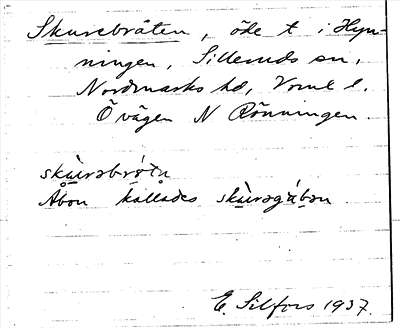 Skurebråten, öde t i Hyn-
ningen, Silleruds sn,
Nordmarks hd, Värml l.
Ö vägen N Rönningen.
skùrəbró̀tn
Åbon kallades skùrəgúbən
E. Silfors 1937.